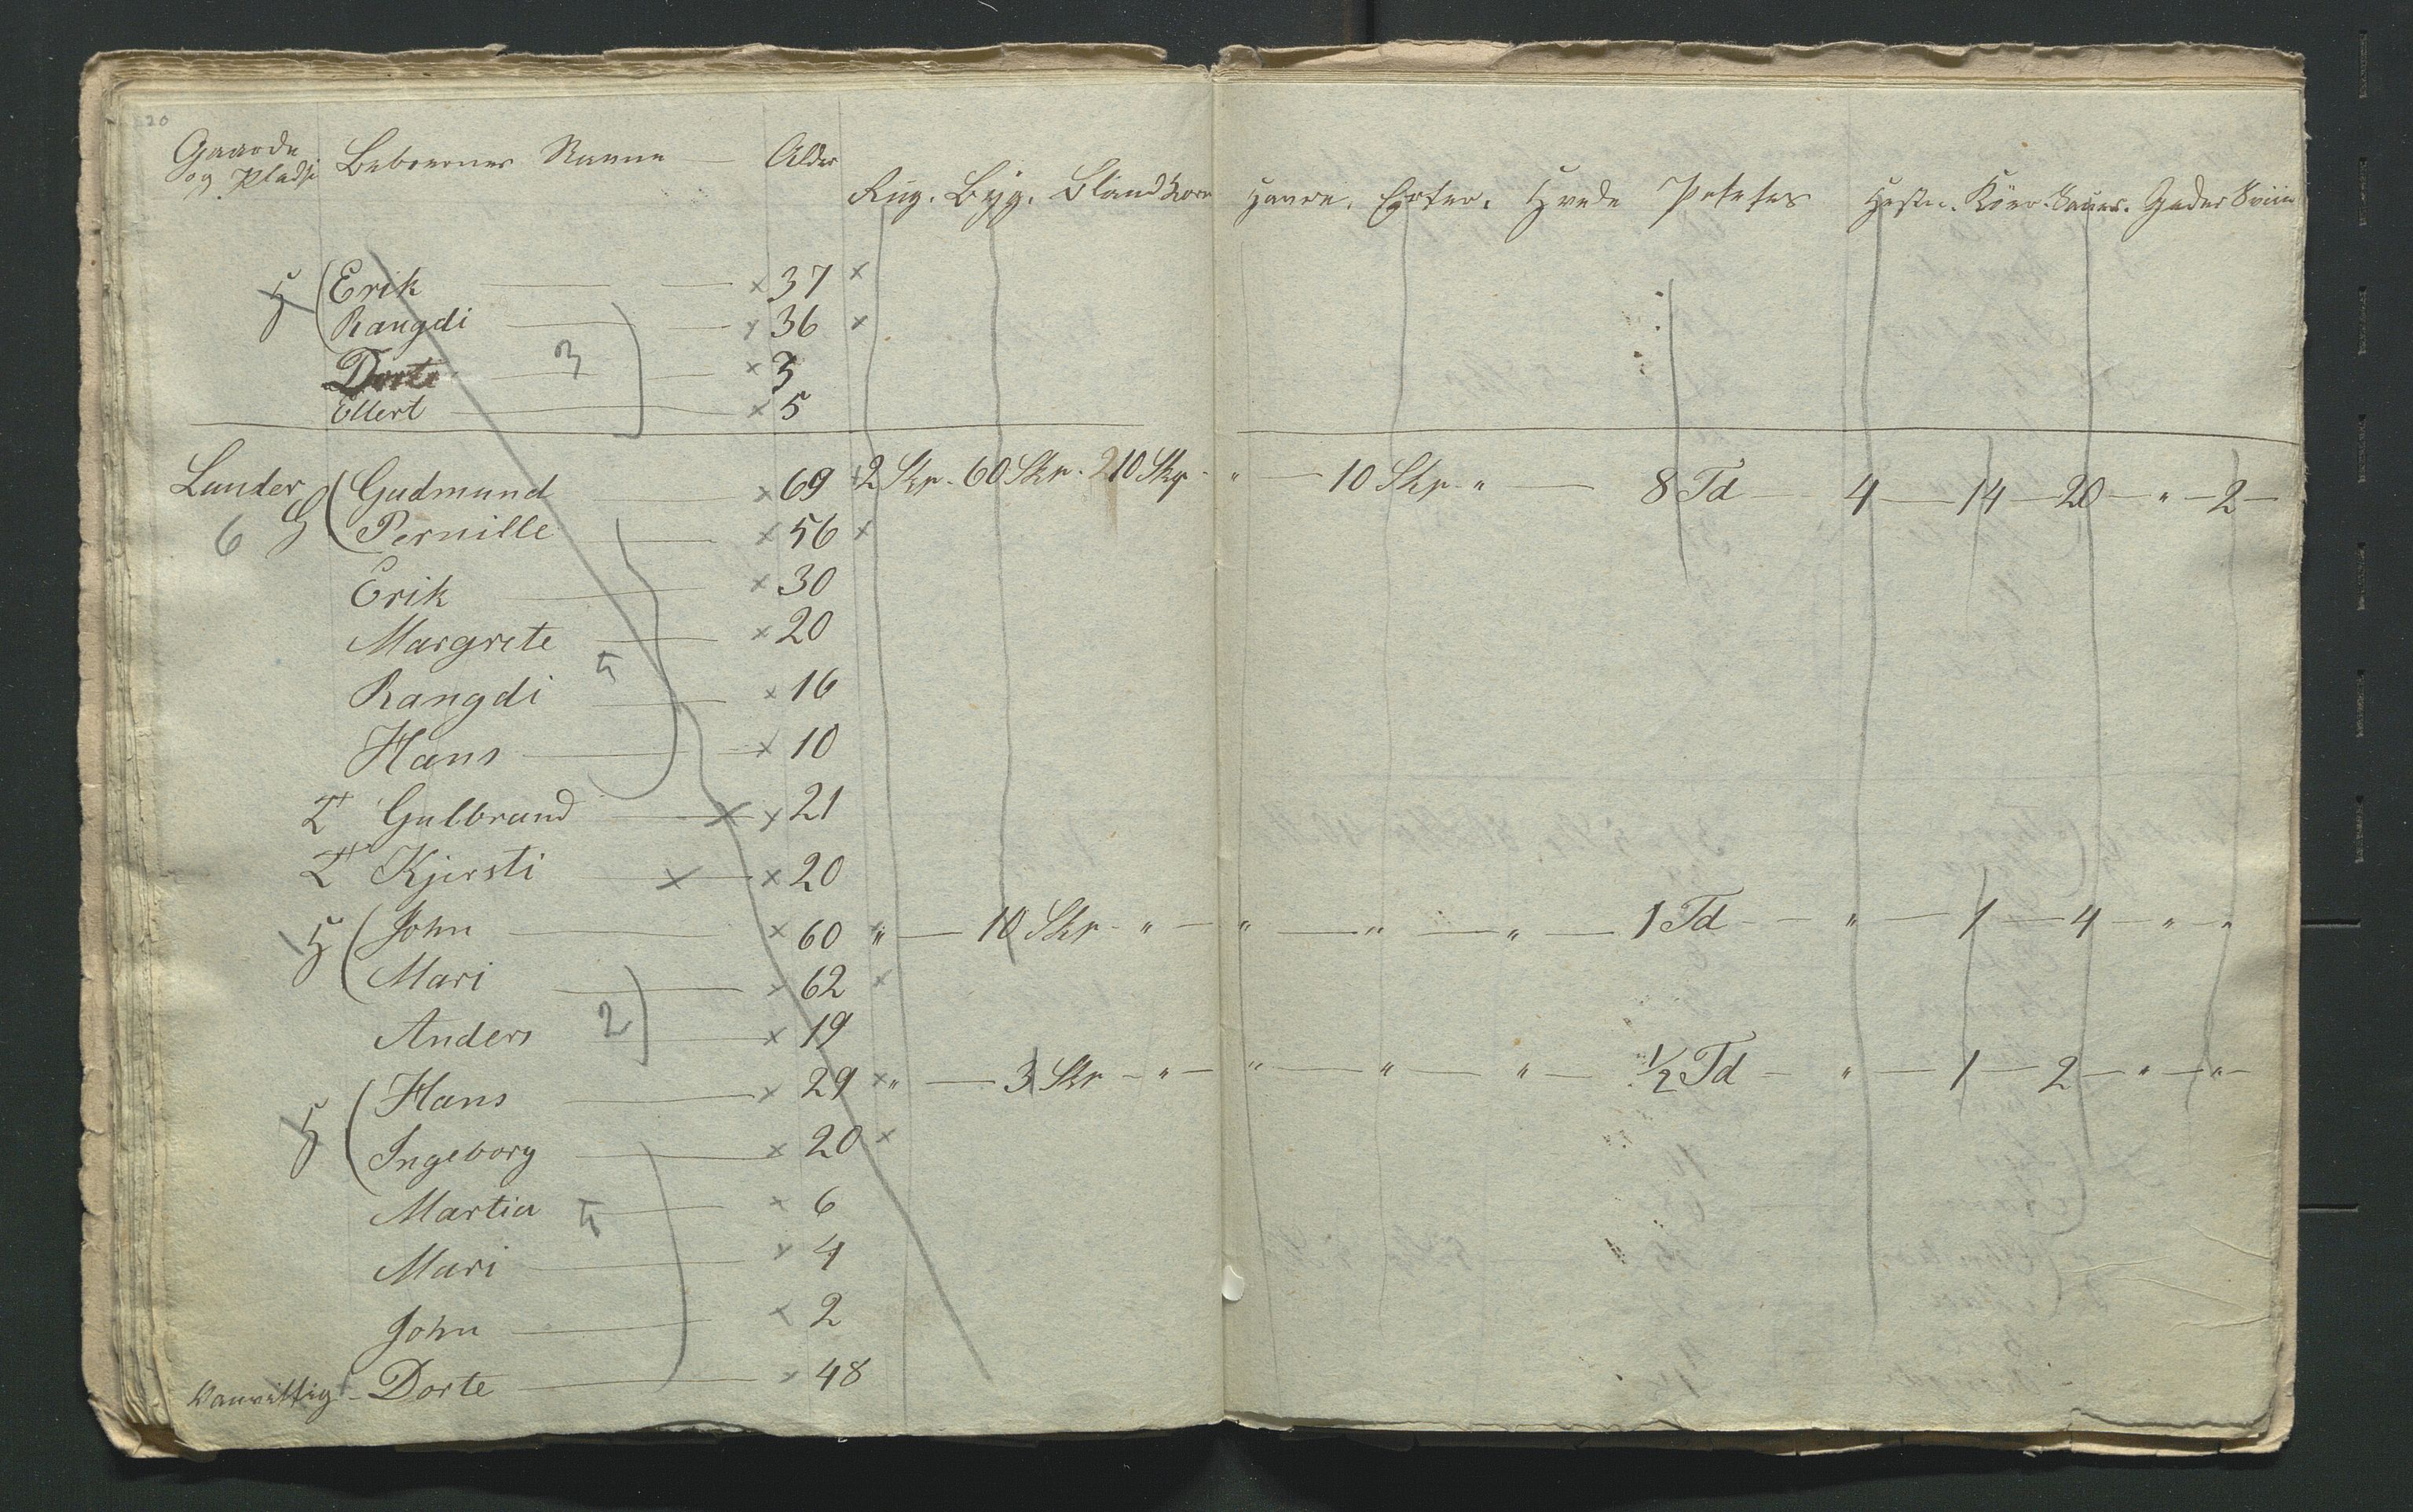 20
Gaarde og Pladse Beboernes Navne Alder Rug. Byg. Blandkorn Havre. Erter. Hvede Potetes Heste. Köer. Sauer. Geder Sviin
H Erik x 37 x
Rangdi x 36 x
3
Dorte x 3
Ellert x 5
Lunder G Gudmund x 69 2 Skp. 60 Skp. 210 Skp. " 10 Skp. " 8 Td 4 14 20 " 2
6 Pernille x 56 x
Erik x 30
Margrete x 20
5
Rangdi x 16
Hans x 10
T Gulbrand x x 21
T Kjersti x x 20
H John x 60 " 10 Skp. " " " " 1 Td " 1 4 " "
Mari x 62 x
Anders 2 x 19
H Hans x 29 x " 3 Skp " " " " 1/2 Td " 1 2 " "
Ingeborg x 20 x
Martia 5 x 6
Mari x 4
John x 2
Vanvittig - Dorte x 48